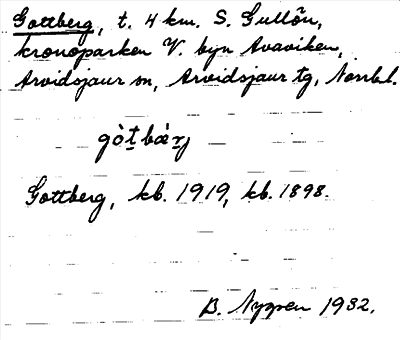 Gottberg, t. 4 km. S. Gullön,
kronoparken V. byn Avaviken,
Arvidsjaur sn, Arvidsjaur tg, Norrb.l.
gòt bæ̀rj
Gottberg, kb. 1919, kb. 1898.
B. Nygren 1932.